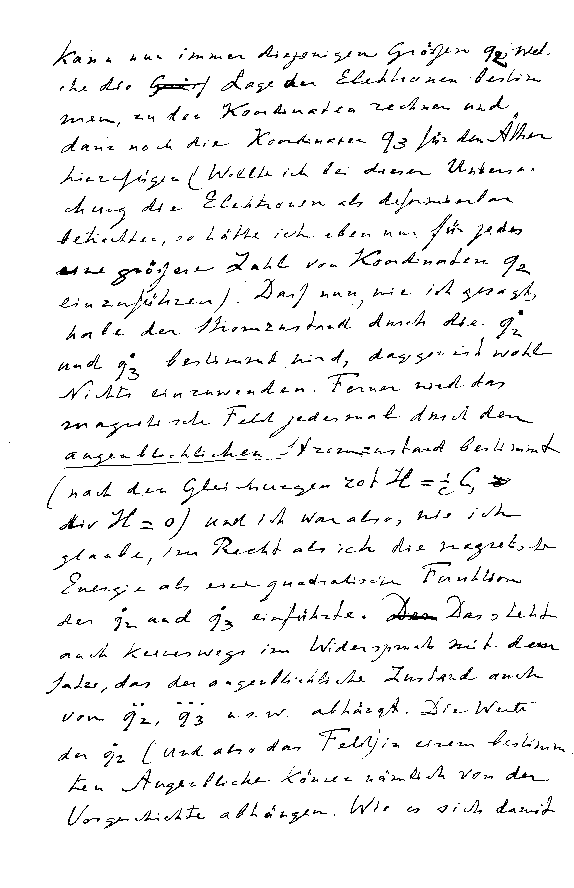 kann nun immer diejenigen Größen q₂, wel-
che die Lage der Elektronen bestim-
men, zu den Koordinaten rechnen und
dann noch die Koordinaten q₃ für den Äther
hinzufügen (Wollte ich bei dieser Untersu-
chung die Elektronen als deformierbar
betrachten, so hätte ich eben nur für jedes
eine größere Zahl von Koordinaten q₂
einzuführen). Daß nun, wie ich gesagt
habe der Stromzustand durch die q̇₂
und q̇₃ bestimmt wird, dagegen ist wohl
Nichts einzuwenden. Ferner wird das
magnetische Feld jedesmal durch den
augenblicklichen Stromzustand bestimmt
(nach den Gleichungen rot H = 1/c C,
div H = 0) und ich war also, wie ich
glaube, im Recht als ich die magnetische
Energie als eine quadratische Funktion
der q̇₂ und q̇₃ einführte. Das steht
auch keineswegs im Widerspruch mit dem
Satze, das der augenblickliche Zustand auch
von q̈₂, q⃛₃ u.s.w. abhängt. Die Werte
der q̇₂ (und also das Feld) in einem bestimm-
ten Augenblicke können nämlich von der
Vorgeschichte abhängen. Wie es sich damit